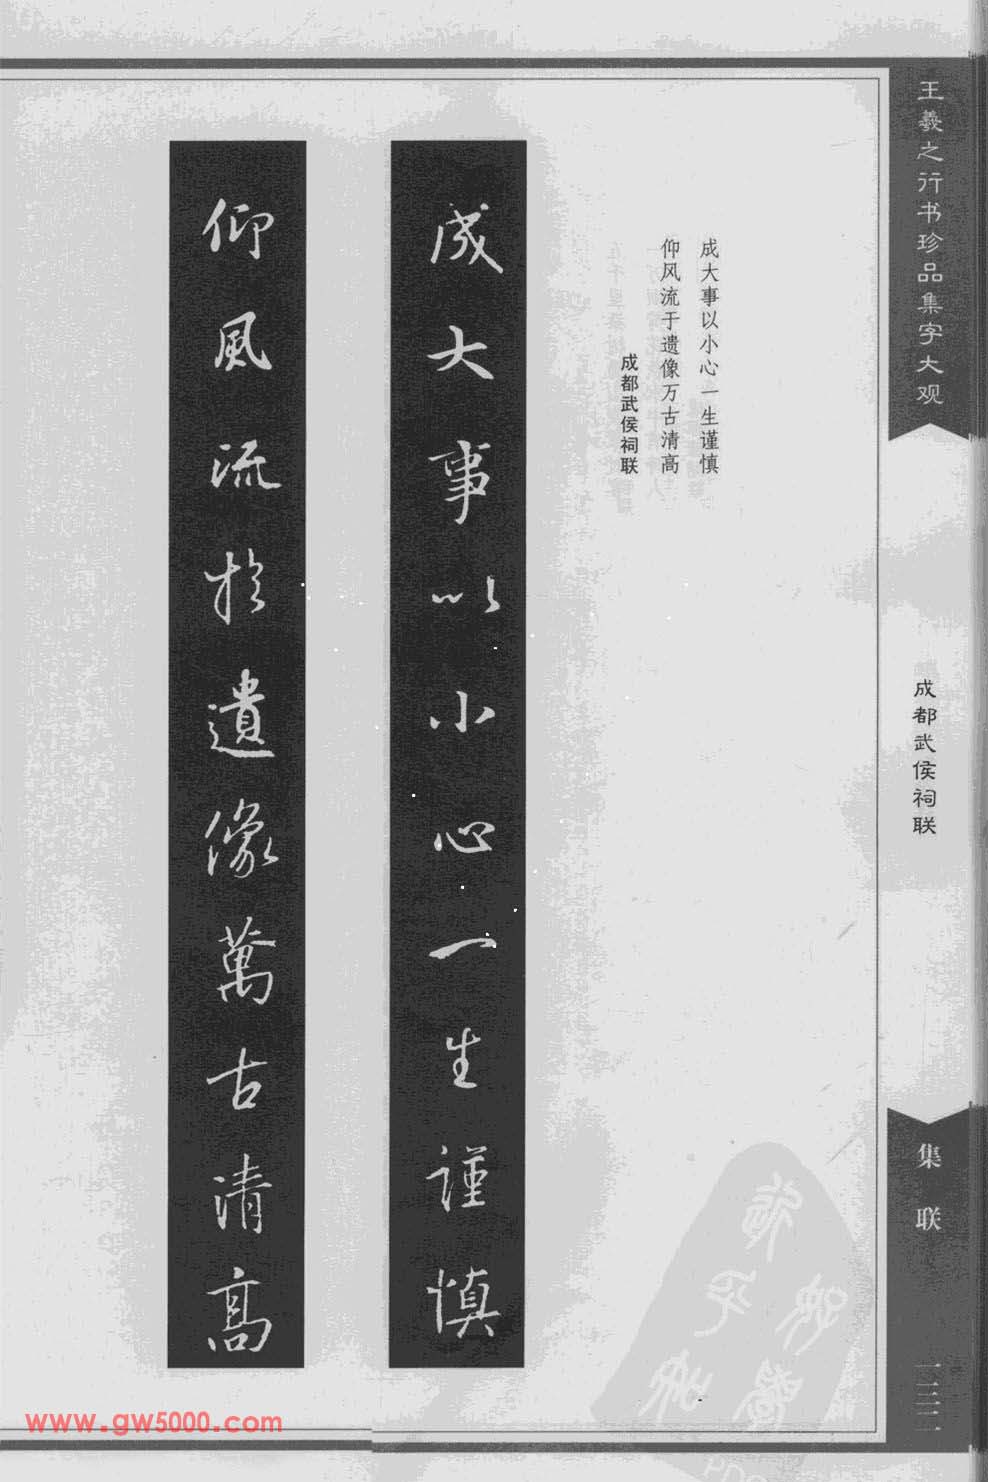 王羲之行书珍品集字大观
成都武侯祠联
集联
一二三三
成大事以小心一生谨慎
仰风流于遗像万古清高
成都武侯祠联
成大事以小心一生謹慎
仰風流於遺像萬古清高
www.gw5000.com